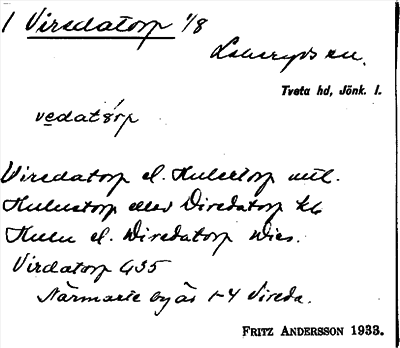 1 Virsdatorp 1/8
Lekeryds sn.
Tveta hd, Jönk. l.
vedatårp
Virsdatorp el. Hulutorp
Hulutorp eller Diredatorp
Hulu el. Wiredatorp
Virdatorp G35
Närmaste by är 1-4 Vireda.
FRITZ ANDERSSON 1933.